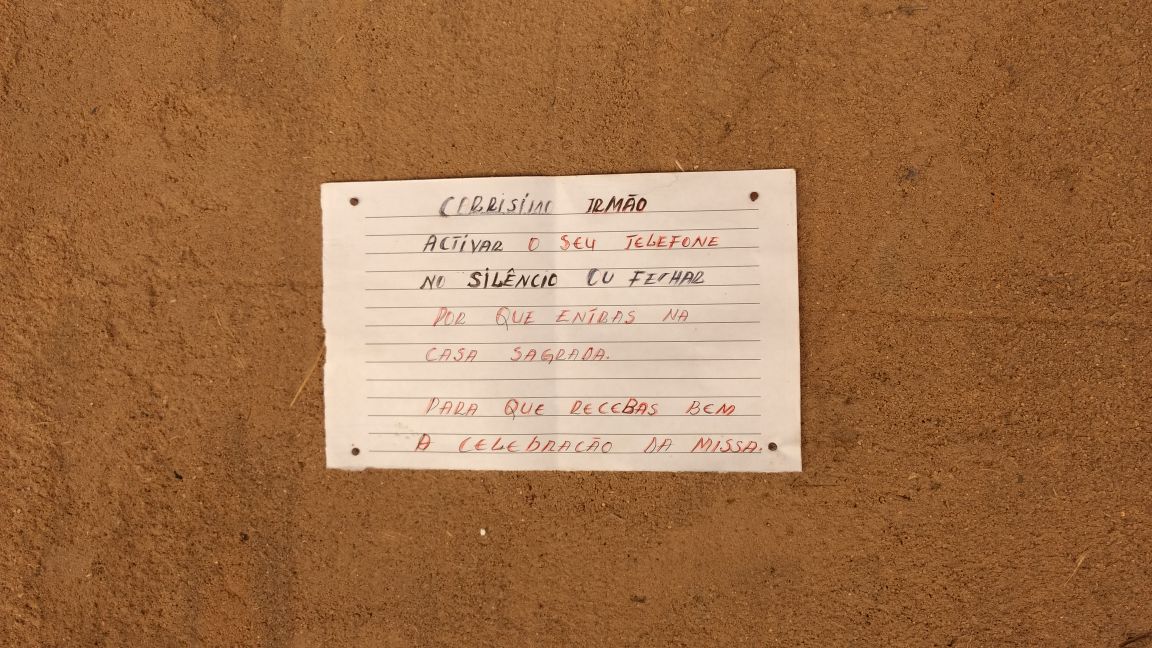 CERRISÍMO IRMÃO
ACTIVAR O SEU TELEFONE
NO SILÊNCIO OU FECHAR
POR QUE ENTRAS NA
CASA SAGRADA.
PARA QUE RECEBAS BEM
A CELEBRACÃO DA MISSA.